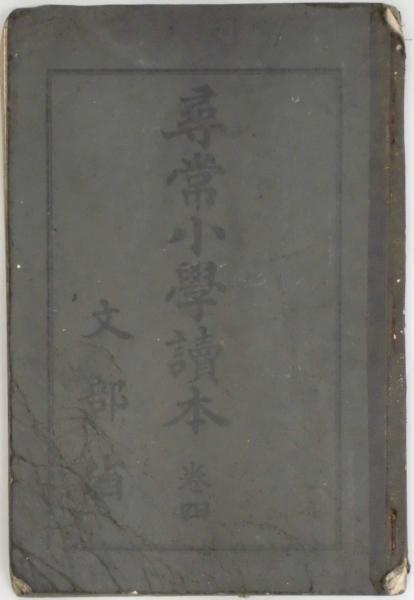 尋常小學讀本 卷四
文部省